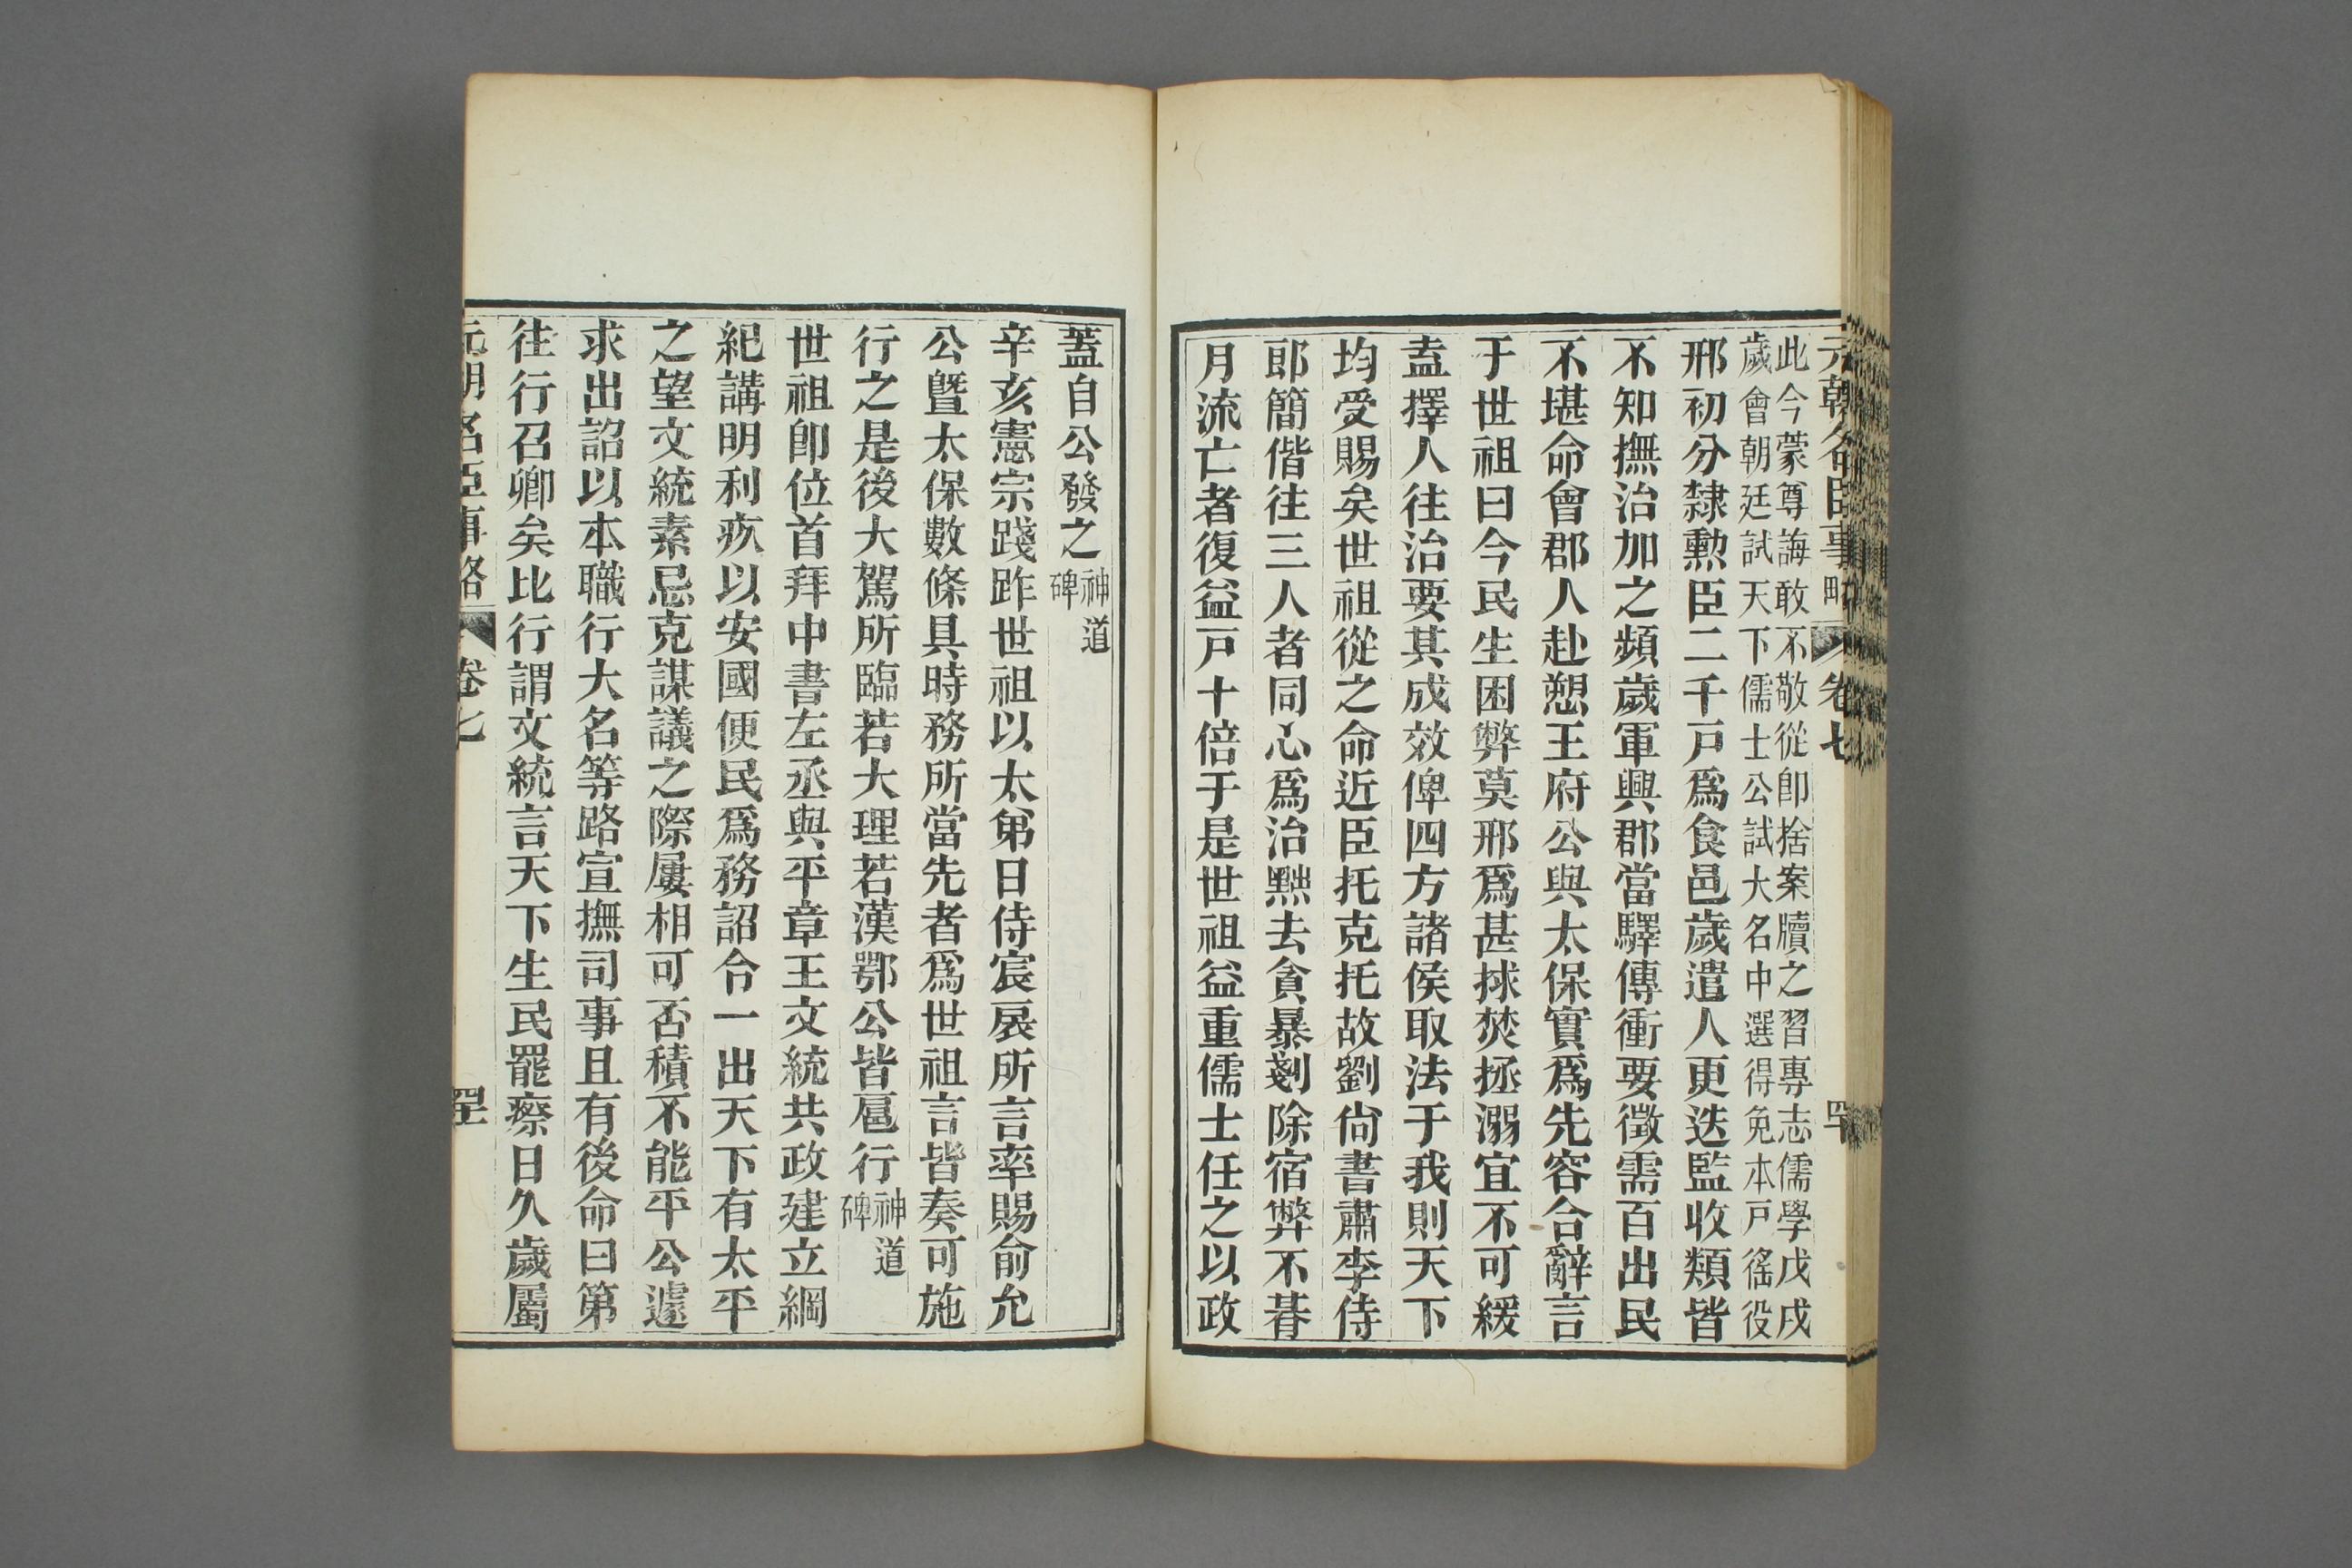 元朝名臣事略 卷七 四十
此今蒙尊誨敢不敬從卽捨案牘之習專志儒學戊戌
歲會朝廷試天下儒士公試大名中選得免本戸徭役
邢初分隸勲臣二千戸爲食邑歲遣人更迭監收類皆
不知撫治加之頻歲軍興郡當驛傳衝要徵需百出民
不堪命會郡人赴愬王府公與太保實爲先容合辭言
于世祖曰今民生困弊莫邢爲甚捄焚拯溺宜不可緩
盍擇人往治要其成效俾四方諸侯取法于我則天下
均受賜矣世祖從之命近臣托克托故劉尙書肅李侍
郎簡偕往三人者同心爲治黜去貪暴剗除宿弊不朞
月流亡者復益戸十倍于是世祖益重儒士任之以政
蓋自公發之神道
碑
辛亥憲宗踐阼世祖以太弟日侍宸扆所言率賜俞允
公曁太保數條具時務所當先者爲世祖言皆奏可施
行之是後大駕所臨若大理若漢鄂公皆扈行神道
碑
世祖卽位首拜中書左丞與平章王文統共政建立綱
紀講明利疚以安國便民爲務詔令一出天下有太平
之望文統素忌克謀議之際屢相可否積不能平公遽
求出詔以本職行大名等路宣撫司事且有後命曰第
往行召卿矣比行謂文統言天下生民罷瘵日久歲屬
元朝名臣事略 卷七 四十一